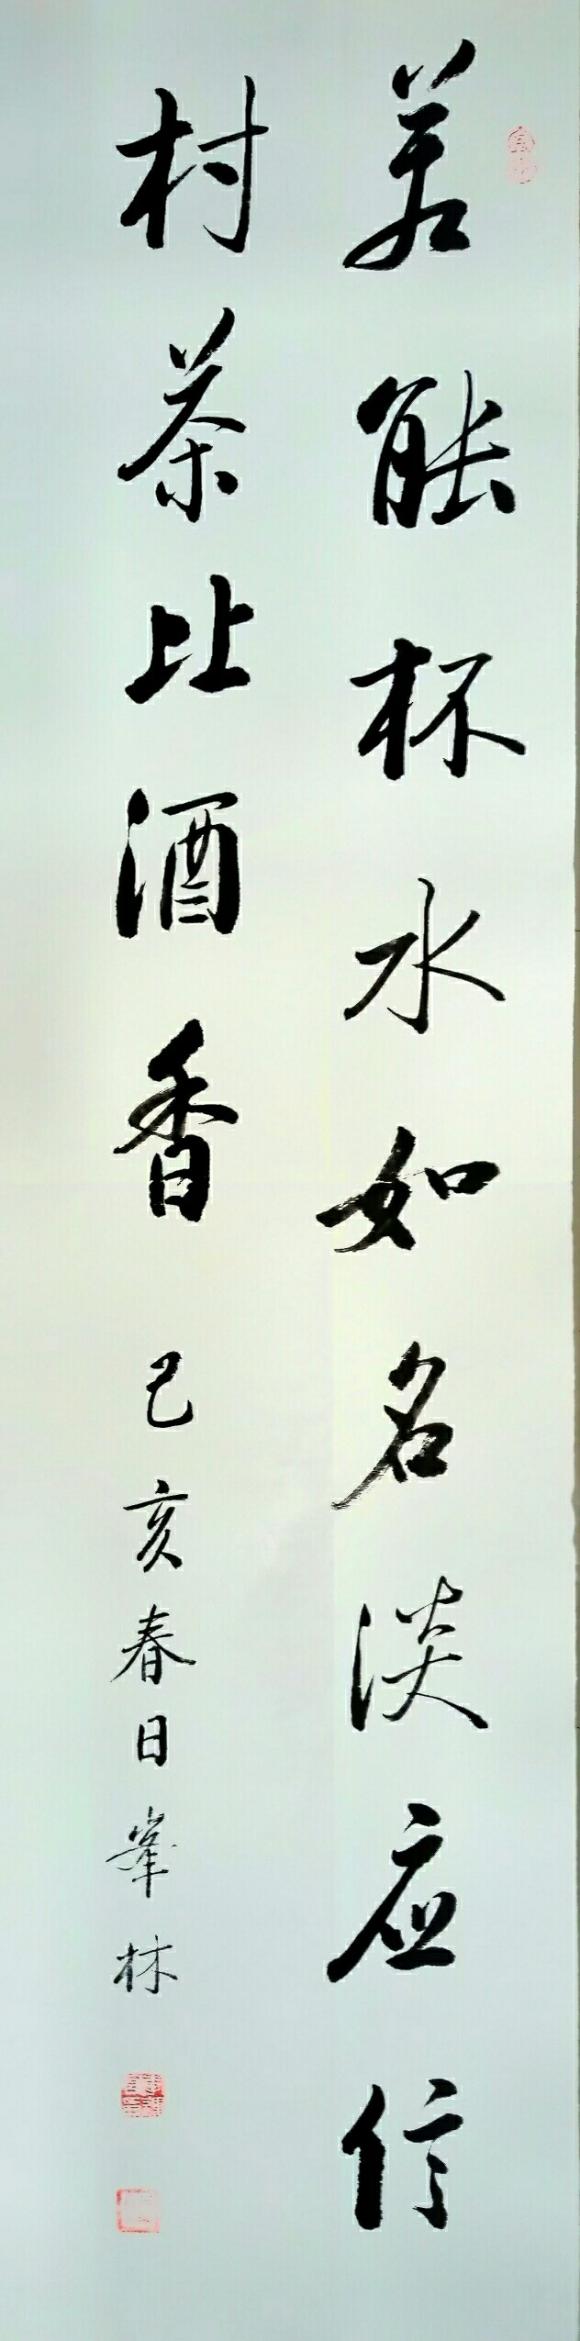 若能杯水如名淡应信
村茶比酒香 己亥春日峯林